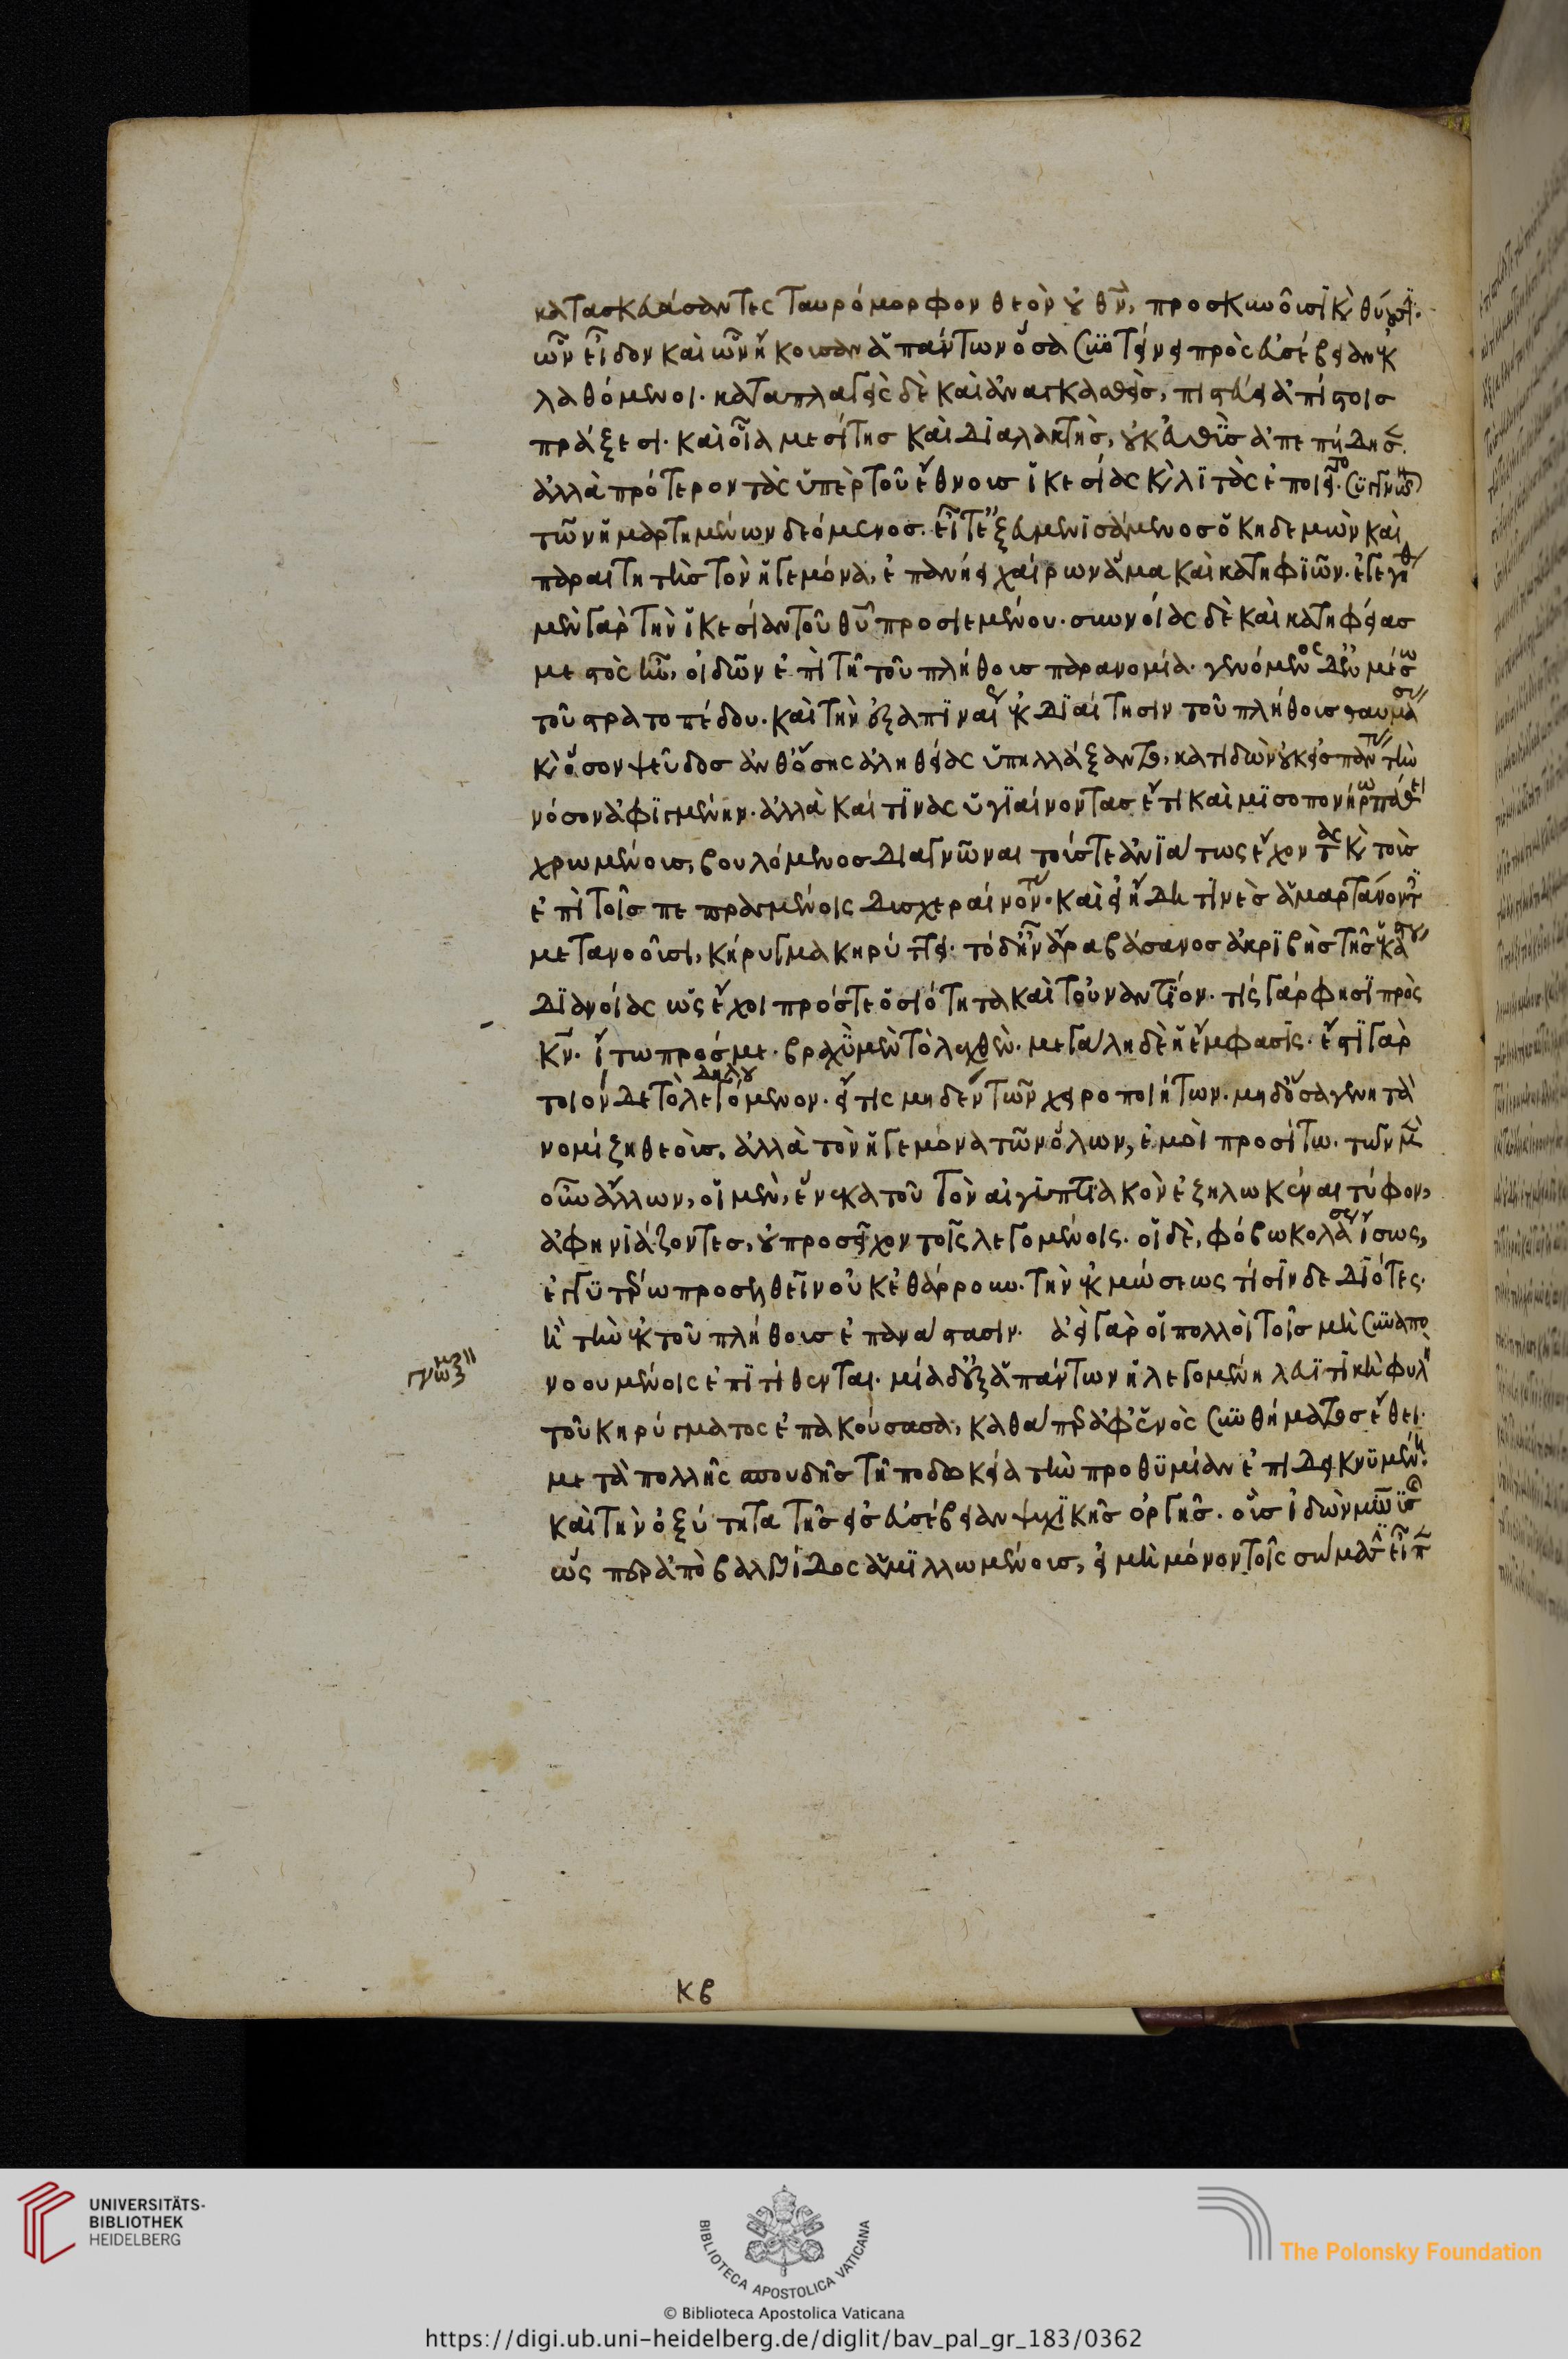 κατασκευάσαντες ταυρόμορφον θεὸν οὐ θν̄, προσκυνοῦσϊ κ̀ θύουσϊ·
ὧν εἶδον καὶ ὧν ἤκουσαν ἁπάντων ὅσα συντείνει πρὸς εὐσέβειαν ἐκ
λαθόμενοι. καταπλαγεὶς δὲ καὶ ἀναγκασθεὶς, πιστεύει ἀπίστοις
πράξεσι. καὶ οἷα μεσίτης καὶ διαλακτὴς, οὐκ εὐθὺς ἀπεπήδησ.
ἀλλὰ πρότερον τὰς ὑπὲρ τοῦ ἔθνους ἱκεσίας κ̀ λϊτὰς ἐποιεῖτο. συγγνῶν
τῶν ἡμαρτημένων δεόμενος. εἶτ' ἐξευμενϊσάμενος ὁ κηδεμὼν καὶ
παραιτητὴς τὸν ἡγεμόνα, ἐπανήει χαίρων ἅμα καὶ κατηφϊῶν. ἐγεγήθ
μὲν γὰρ τὴν ἱκεσίαν τοῦ θῡ προσιεμένου. συννοίας δὲ καὶ κατηφείας
μεστὸς ἦν, οἰδῶν ἐπὶ τῇ τοῦ πλήθους παρανομία. γενόμενος δ' ἐν μέσω
τοῦ στρατοπέδου. καὶ τὴν ἐξαπϊναι ἐκδϊαίτησιν τοῦ πλήθους θαυμάσ
κ̀ ὅσον ψεῦδος ἀνθ' ὅσης ἀληθείας ὑπηλλάξαντο, κατιδὼν οὐκ εἰς παντ τὴν
νόσον ἀφϊγμένην. ἀλλὰ καί τϊνας ὑγϊαίνοντας ἔτι καὶ μϊσοπονήρω πάθει
χρωμένους, βουλόμενος διαγνῶναι τούς τε ἀνϊάτως ἔχοντας κ̀ τοὺς
ἐπὶ τοῖς πεπραγμένοις δυσχεραίνοντ. καὶ εἰ ἤδη τϊνὲς ἁμαρτάνοντ
μετανοοῦσι, κήρυγμα κηρύττει. τὸ δ' ἦν ἄρα βάσανος ἀκρϊβὴς τῆς ἑκάστου
δϊανοίας ὡς ἔχοι πρός τε ὁσιότητα καὶ τοὐναντϊον. τίς γάρ φησϊ πρὸς
κν̄. ἴτω πρός με. βραχὺ μὲν τὸ λεχθέν. μεγάλη δὲ ἡ ἔμφασϊς. ἔστϊ γὰρ
τοιόνδε τὸ δηλού λεγόμενον. εἴ τις μηδὲν τῶν χειροποιήτων. μηδ' ὅσα γενητὰ
νομίζη θεοὺς, ἀλλὰ τὸν ἡγεμόνα τῶν ὅλων, ἐμοὶ προσίτω. τῶν μ
οὖν ἄλλων, οἱ μὲν, ἕνεκα τοῦ τὸν αἰγϋπτϊακὸν ἐζηλωκέναι τύφον,
ἀφηνϊάζοντες, οὐ προσεῖχον τοῖς λεγομένοις. οἱ δὲ, φόβω κολάσε ἴσως,
ἐγγϋτέρω προσελθεῖν οὐκ ἐθάρρουν. τὴν ἐκ μώσεως τίσϊν δεδϊότες.
ἢ τὴν ἐκ τοῦ πλήθους ἐπανάστασιν. ἀεὶ γὰρ οἱ πολλοὶ τοῖς μὴ συναπο
νοουμένοις ἐπϊτίθενται. μία δ' ἐξ ἁπάντων ἡ λεγομένη λευϊτϊκὴ φυλὴ
τοῦ κηρύγματος ἐπακούσασα, καθάπερ ἀφ' ἑνὸς συνθήματος ἔθει.
μετὰ πολλῆς σπουδῆς τῇ ποδωκεία τὴν προθϋμίαν ἐπιδεικνϋμένη.
καὶ τὴν ὀξύτητα τῆς εἰς εὐσέβειαν ψυχϊκῆς ὁρμῆς. οὓς ἰδὼν μωϋσῆς
ὥσπερ ἀπὸ βαλβίδος ἁμϊλλωμένους, εἰ μὴ μόνον τοῖς σώμασ εἶπ
γνωμ
κβ
UNIVERSITÄTS-
BIBLIOTHEK
HEIDELBERG
BIBLIOTECA APOSTOLICA VATICANA
The Polonsky Foundation
© Biblioteca Apostolica Vaticana
https://digi.ub.uni-heidelberg.de/diglit/bav_pal_gr_183/0362